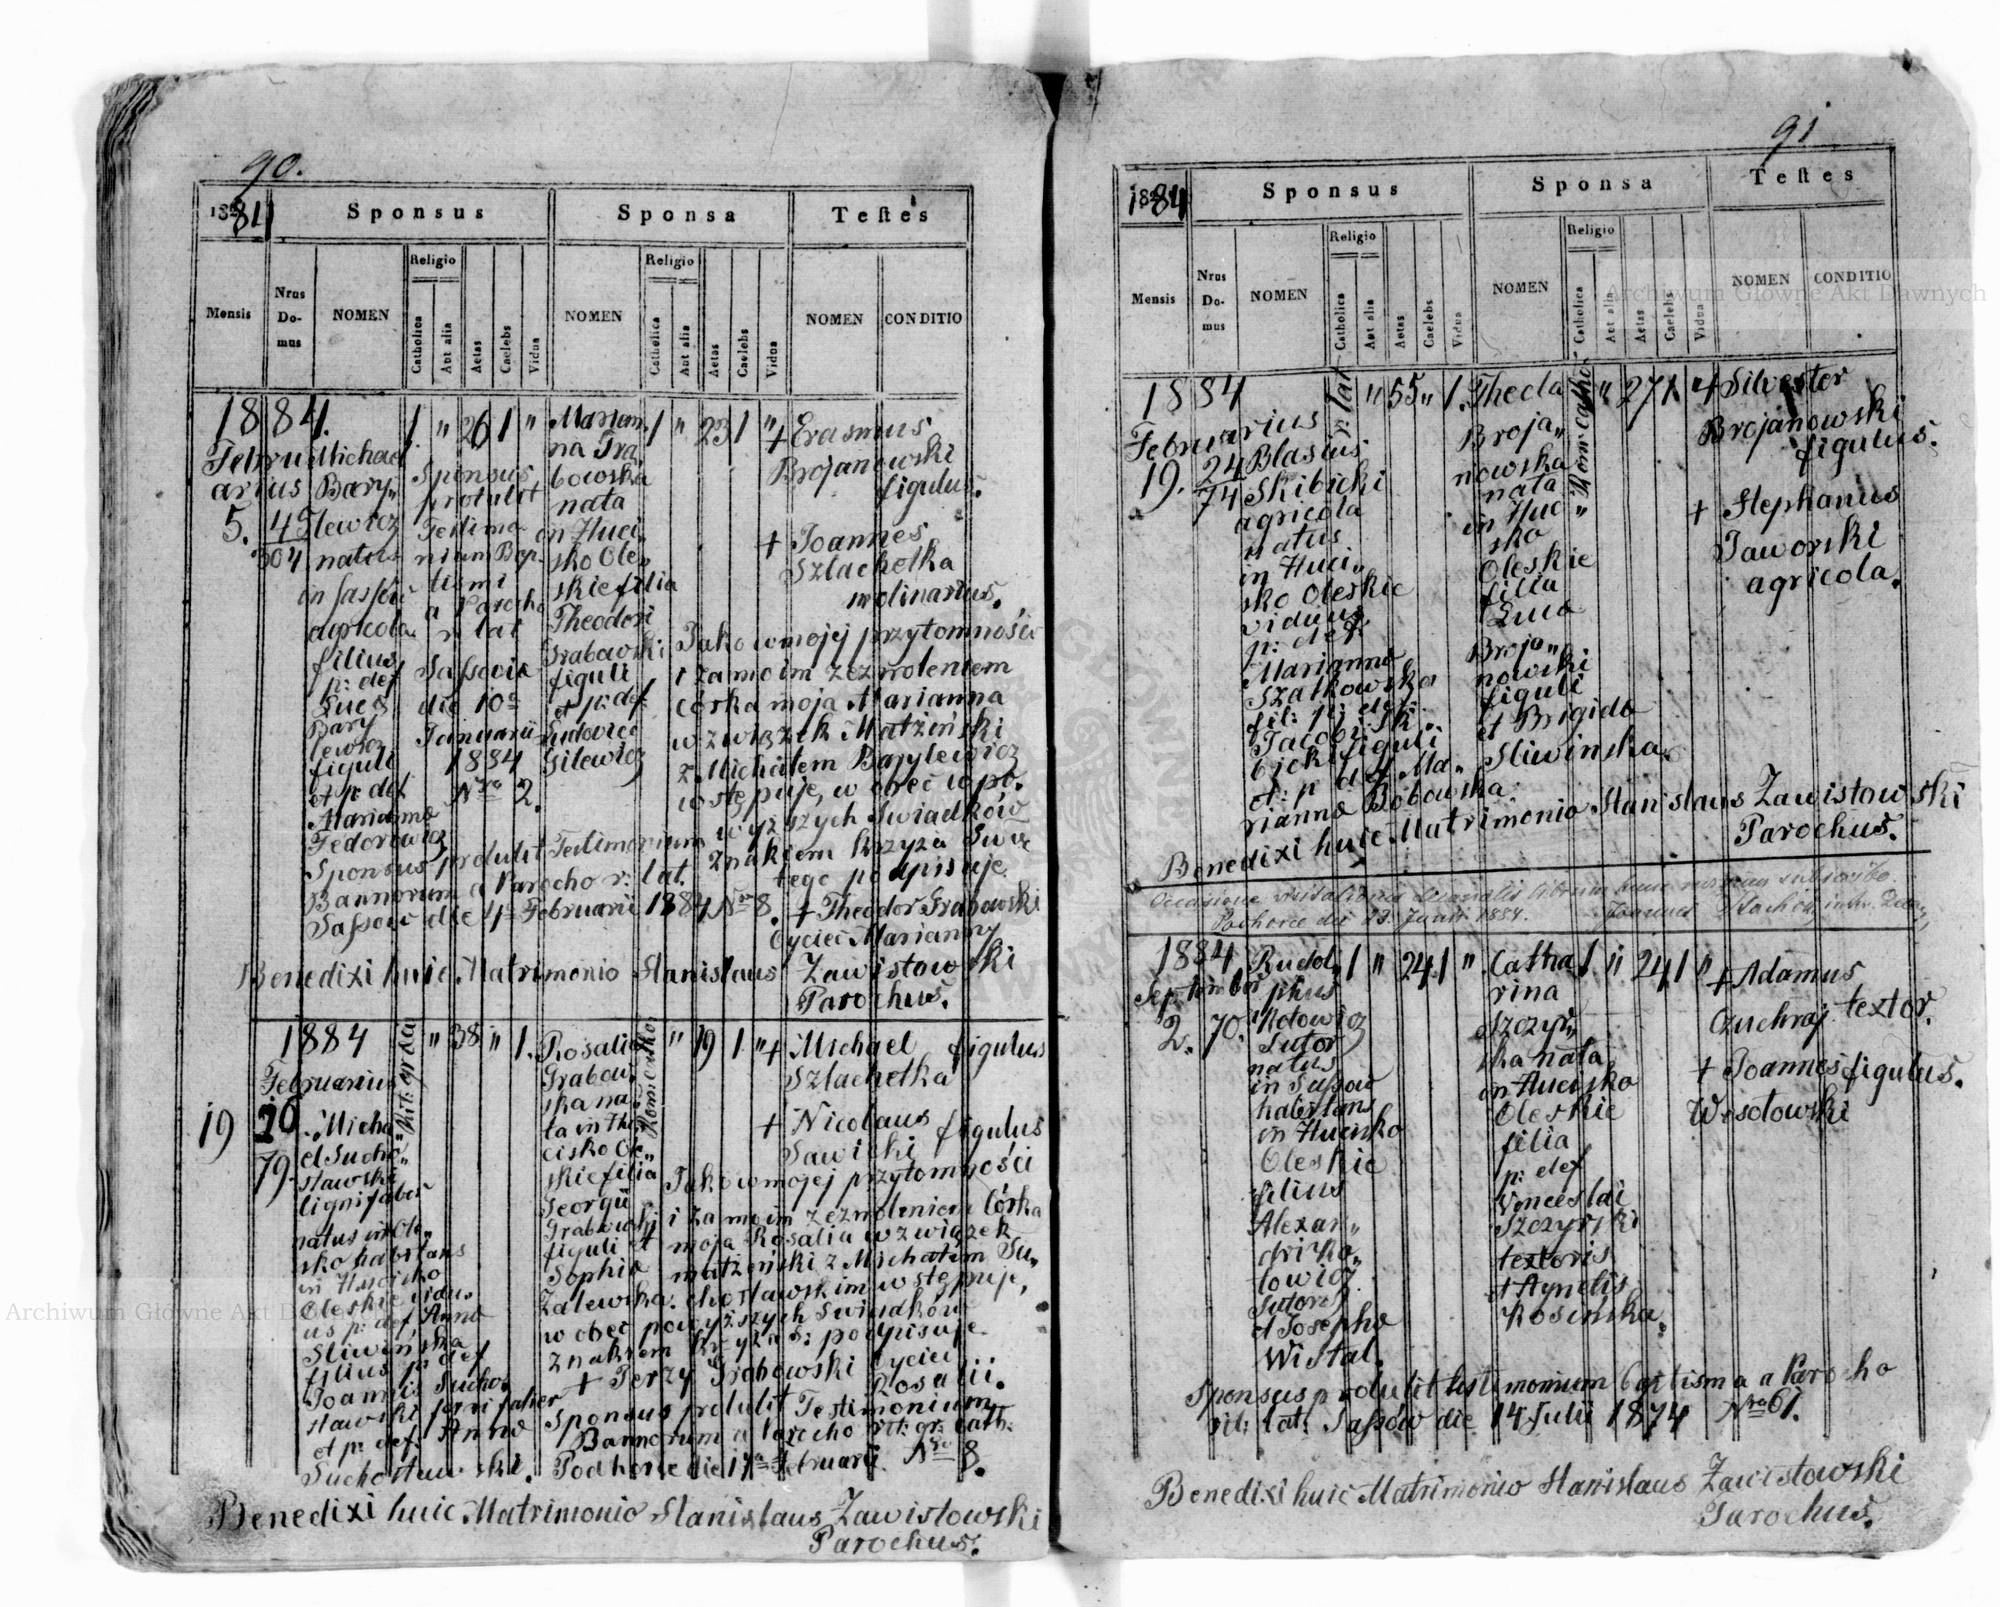 90.
1884
Sponsus
Sponsa
Testes
Mensis
Nrus Domus
NOMEN
Religio
Catholica
Aut alia
Aetas
Caelebs
Vidua
NOMEN
Religio
Catholica
Aut alia
Aetas
Caelebs
Vidua
NOMEN
CONDITIO
1884.
Februarius
5.
4
304
Michael
Bary„
lewicz
natus
in Sassów
agricola
filius
p: def
Lucæ
Bary
lewicz
figuli
et p: def
Marianna
Fedorowicz
1 " 26 1 "
Sponsus
protulit
Testimo
nium Bap.
tismi
a Parocho
r. lat
Sassoviæ
die 10ª
Januarii
1884
Nro 2.
Marian
na Gra
bowska
nata
in Huci„
sko Ole„
skie filia
Theodori
Grabowski
figuli
et p: def
Ludovicæ
Gilewicz
1 " 23 1 "
+ Erasmus
Brojanowski
figulus.
+ Joannes
Szlachetka
molinarius.
Jako w mojej przytomności
i za moim zezwoleniem
córka moja Marianna
w związek Matżeński
z Michałem Barylewicz
wstępuje, w obec wpo.
wyższych Swiadków
znakiem krzyża Swię
tego podpisuje
+ Theodor Grabowski
Oyciec Marianny
Sponsus protulit Testimonium
Bannorum a Parocho r: lat.
Sassow die 4ª Februarii 1884 Nro 8.
Benedixi huic Matrimonio Stanislaus Zawistowski
Parochus.
1884
Februarius
19
20
79.
Micha„
el Sucho„
sławski
lignifaber
natus in Ole„
sko habitans
in Hucisko
Oleskie vidu„
us p: def Anna
Sliwińska
filius p: def
Joannis Sucho„
sławski ferri faber
et p: def. Anna
Suchosławski.
" 38 " 1.
Rosalia
Grabow„
ska na„
ta in Hu„
cisko Ole„
skie filia
Georgii
Grabowski
figuli et
Sophia
Zalewska.
" 19 1 "
+ Michael figulus
Szlachetka
+ Nicolaus figulus
Sawicki
Jako w mojej przytomności
i za moim zezwoleniem Córka
moja Rosalia w związek
małżeński z Michałem Su„
chosławskim wstępuje,
w obec powyższych Swiadków
znakiem krzyża S: podpisuje
+ Jerzy Grabowski Oyciec
Rosalii.
Sponsus protulit Testimonium
Bannorum a Parocho rit: gr: cath:
Podhorce die 17ª Februarii Nro 8.
Benedixi huic Matrimonio Stanislaus Zawistowski
Parochus.
91
1884
Sponsus
Sponsa
Testes
Mensis
Nrus Domus
NOMEN
Religio
Catholica
Aut alia
Aetas
Caelebs
Vidua
NOMEN
Religio
Catholica
Aut alia
Aetas
Caelebs
Vidua
NOMEN
CONDITIO
1884
Februarius
19.
24
74
Blasius
Skibicki
agricola
natus
in Huci„
sko Oleskie
viduus
p: def:
Marianna
Szatkowska
fil: p: def:
Jacobi Ski„
bicki figuli
et: p def Ma„
rianna Bobowska.
r. lat
" 55 " 1.
Thecla
Broja„
nowska
nata
in Huc„
sko
Oleskie
filia
Luca
Broja„
nowski
figuli
et Brigida
Sliwinska.
" 27 1 "
+ Silvester
Brojanowski
figulus.
+ Stephanus
Jaworski
agricola.
Benedixi huic Matrimonio Stanislaus Zawistowski
Parochus.
Occasione visitationis Decanalis librum hunc
Podhorce die 23. Junii 1884. Joannes
1884
September
2.
70.
Rudol„
phus
Kotowicz
Sutor
natus
in Sassow
habitans
in Hucisko
Oleskie
filius
Alexan„
dri Ko„
towicz
Sutoris
et Josepha
Wistal.
1 " 24 1 "
Catha
rina
Szczyr„
ska nata
in Hucisko
Oleskie
filia
p: def
Venceslai
Szczyrski
textoris
et Agnelis
Kosinska.
1 " 24 1 "
+ Adamus
Czuchraj textor.
+ Joannes figulus.
Wesołowski
Sponsus protulit testimonium baptisma a Parocho
rit: lat: Sassów die 14 Julii 1874 Nro 61.
Benedixi huic Matrimonio Stanislaus Zawistowski
Parochus.
Archiwum Główne Akt Dawnych
Archiwum Główne Akt Dawnych